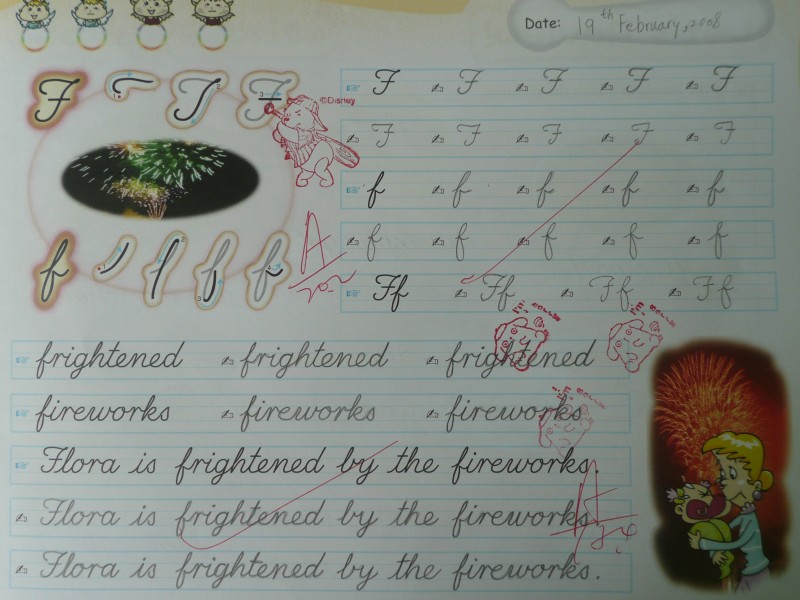 Date: 19th February, 2008
F F F F F
©Disney
F F F F F
f f f f f
f f f f f
Ff Ff Ff Ff
A
frightened frightened frightened
fireworks fireworks fireworks
Flora is frightened by the fireworks.
Flora is frightened by the fireworks.
Flora is frightened by the fireworks.
A